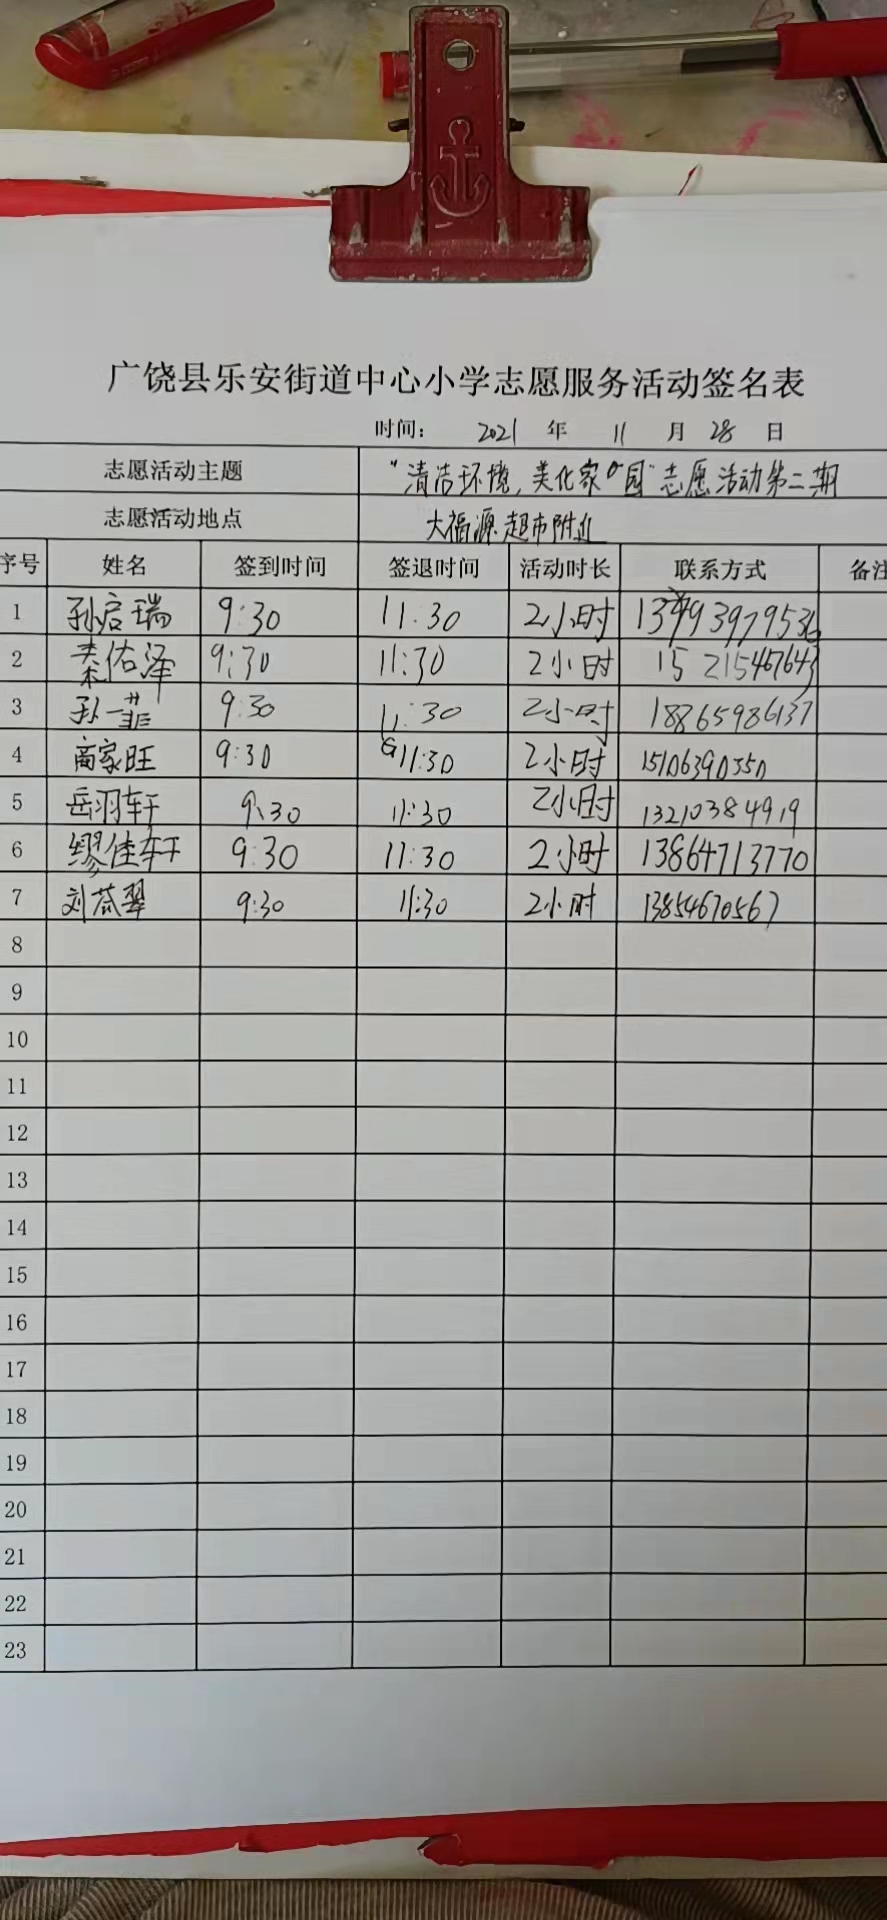 广饶县乐安街道中心小学志愿服务活动签名表
时间： 2021 年 11 月 28 日
志愿活动主题 "清洁环境，美化家园"志愿活动第二期
志愿活动地点 大福源超市附近
序号 姓名 签到时间 签退时间 活动时长 联系方式 备注
1 孙启瑞 9:30 11:30 2小时
2 秦佑泽 9:30 11:30 2小时
3 孙一菲 9:30 11:30 2小时 18865986137
4 商家旺 9:30 11:30 2小时 15106390550
5 岳羽轩 9:30 11:30 2小时 13210384919
6 缪佳轩 9:30 11:30 2小时 13864713770
7 刘恭翠 9:30 11:30 2小时 13854670567
8
9
10
11
12
13
14
15
16
17
18
19
20
21
22
23